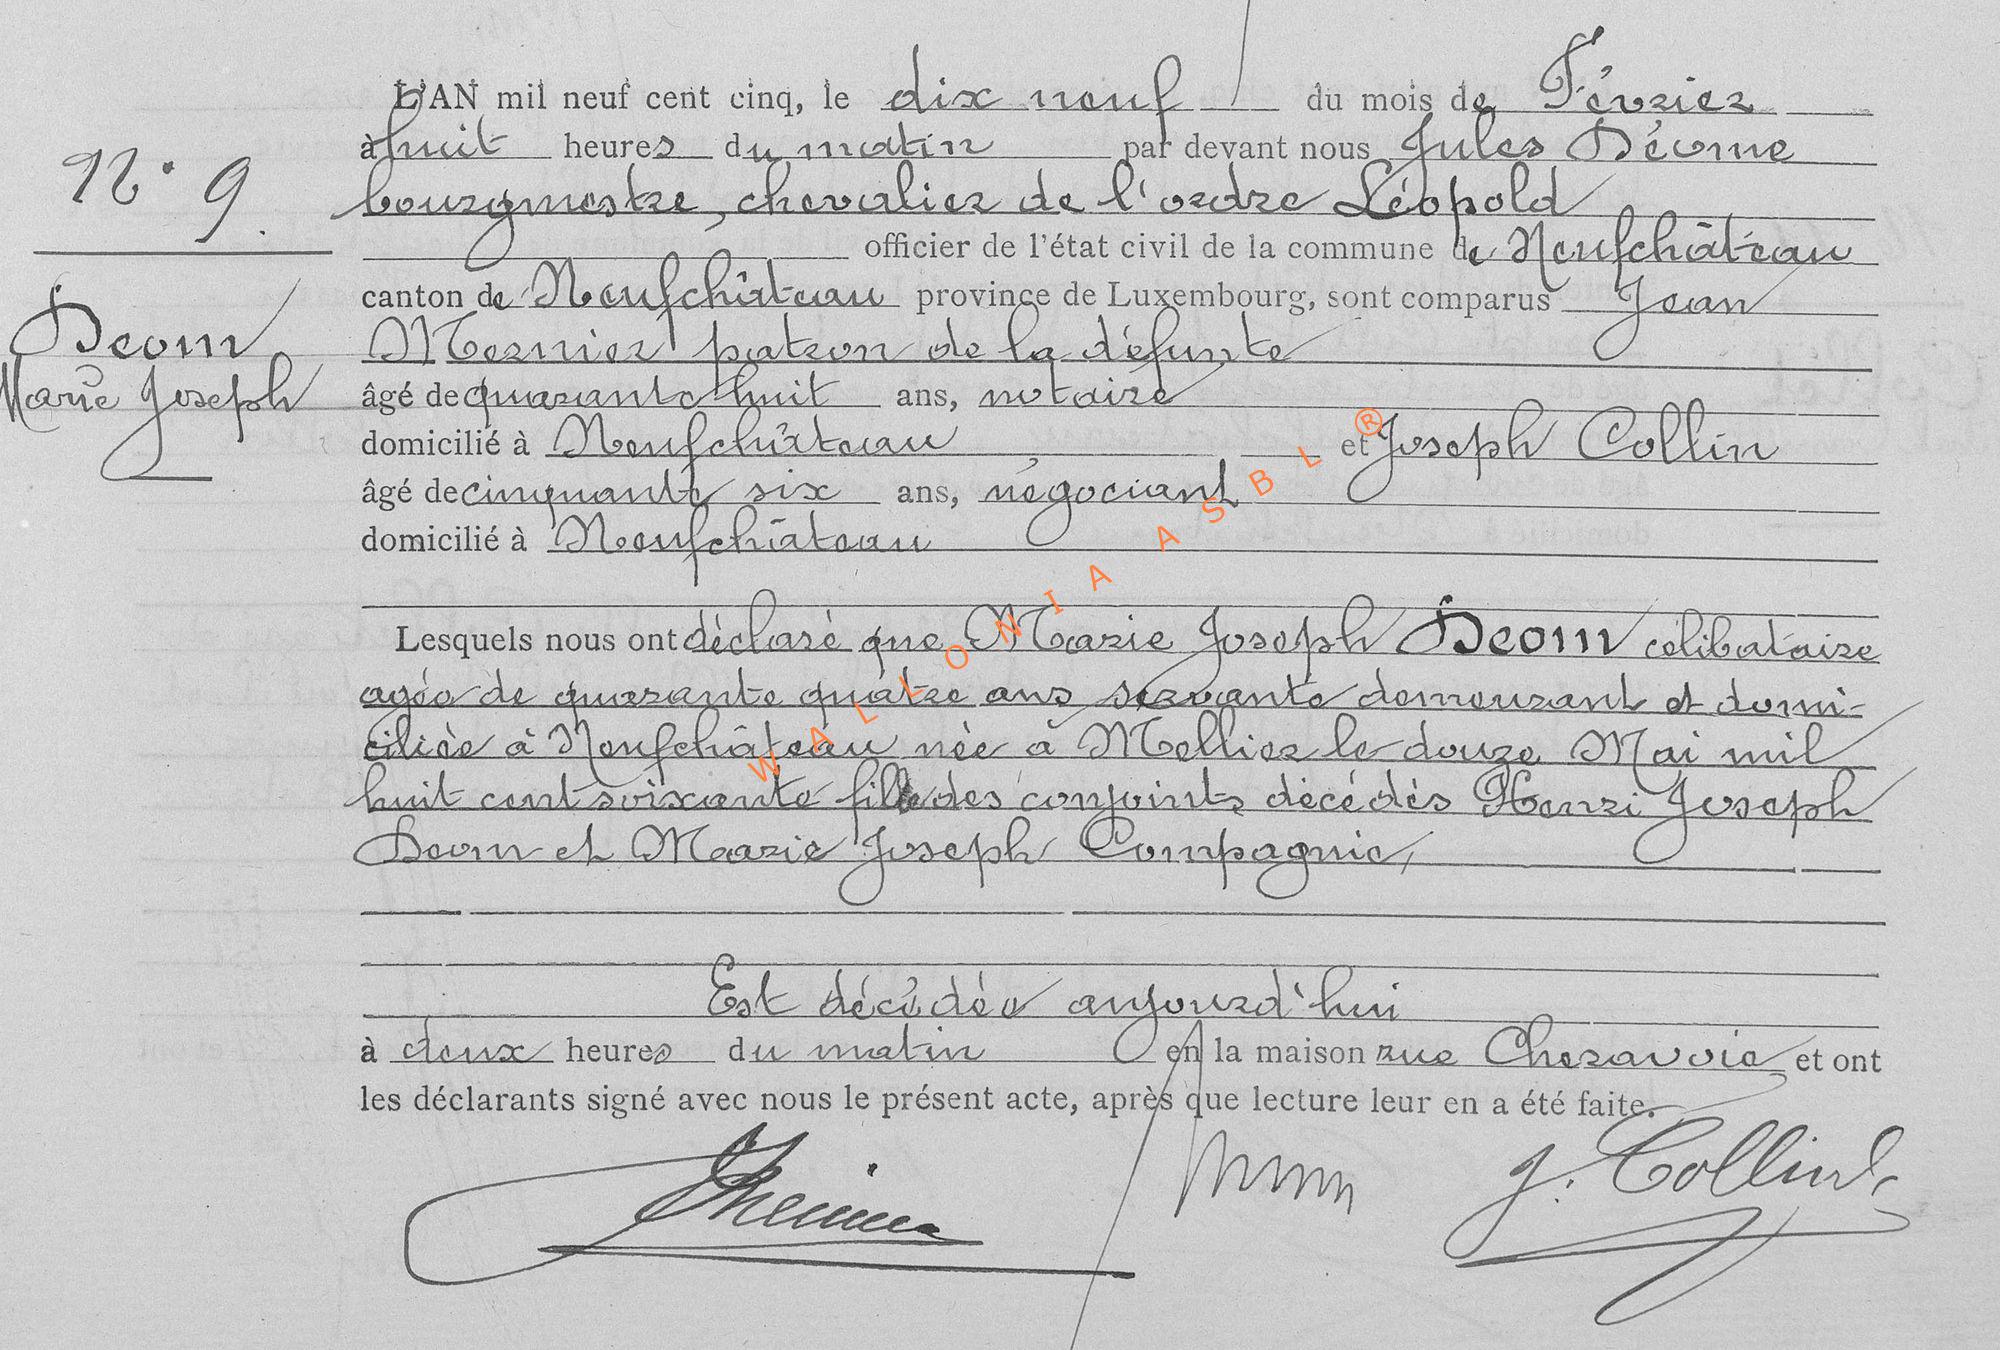 L'AN mil neuf cent cinq, le dix neuf du mois de Février
à huit heures du matin par devant nous Jules Déome
N° 9
bourgmestre, chevalier de l'ordre Léopold
officier de l'état civil de la commune de Neufchâteau
canton de Neufchâteau province de Luxembourg, sont comparus Jean
Deom
Mernier patron de la défunte
Marie Joseph
âgé de quarante huit ans, notaire
domicilié à Neufchâteau et Joseph Collin
âgé de cinquante six ans, négociant
domicilié à Neufchâteau
Lesquels nous ont déclaré que Marie Joseph Deom célibataire
agée de quarante quatre ans servante demeurant et domi-
ciliée à Neufchâteau née à Mellier le douze Mai mil
huit cent soixante fille des conjoints décédés Henri Joseph
Deom et Marie Joseph Compagnie,
Est décédée aujourd'hui
à deux heures du matin en la maison rue Cheravoie et ont
les déclarants signé avec nous le présent acte, après que lecture leur en a été faite.
J. Collin
WALLONIA ASBL ®